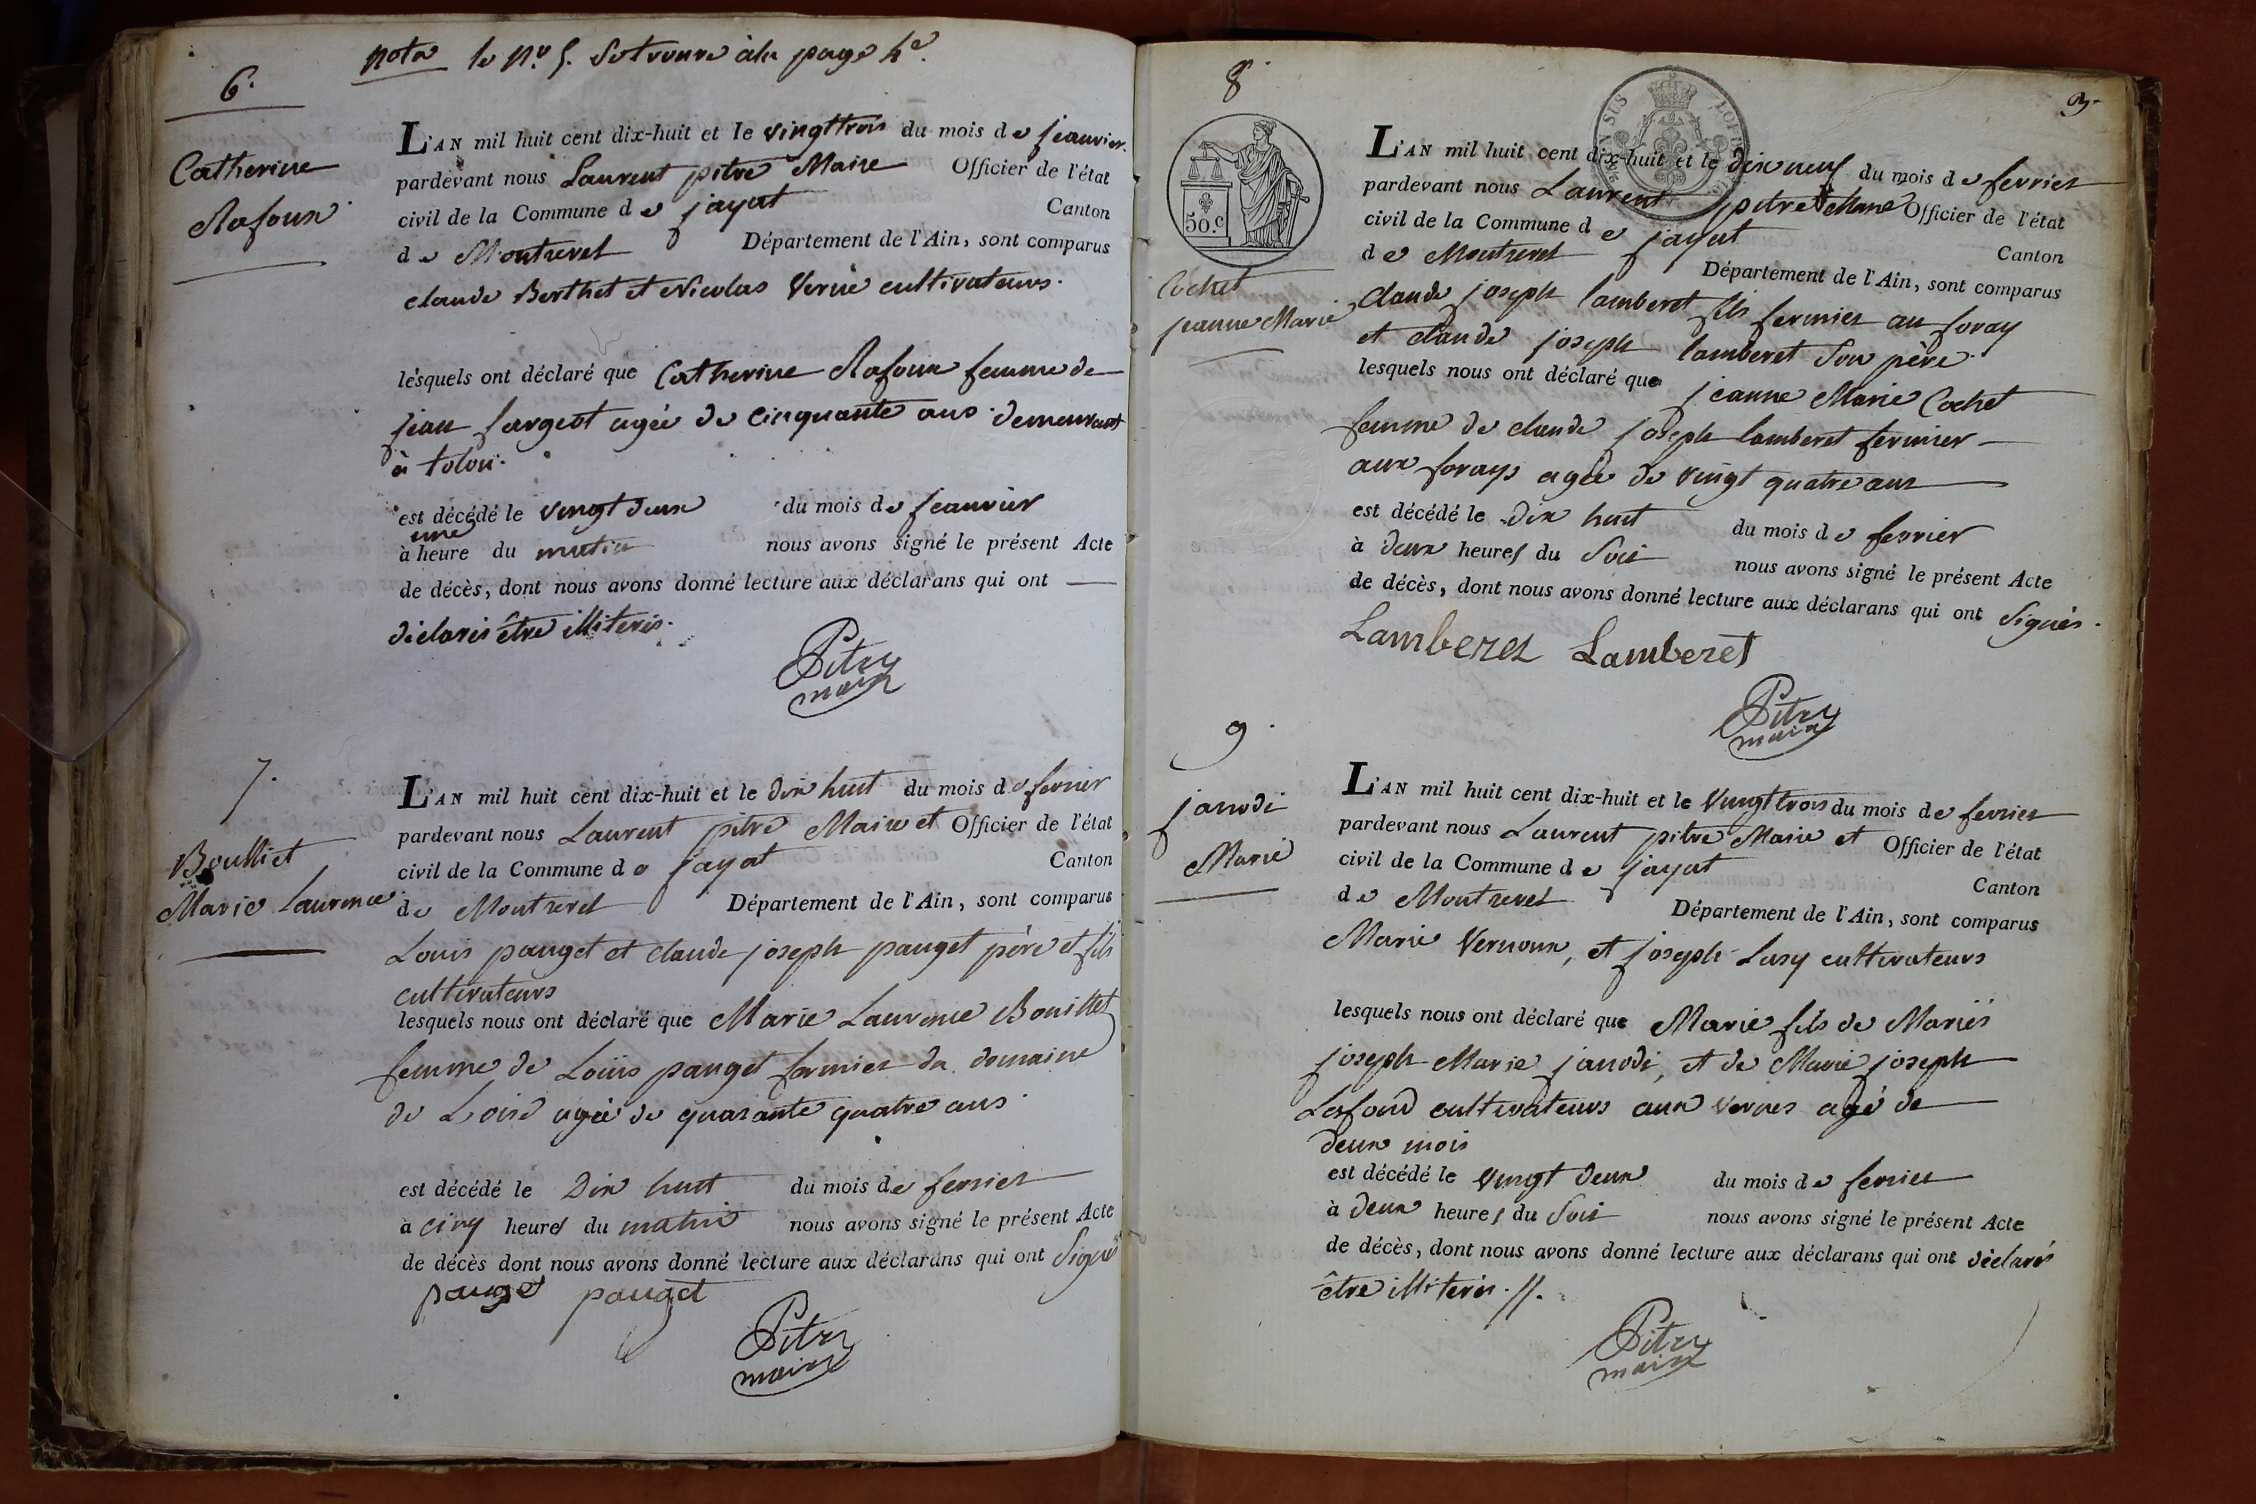 Nota le N.º 5. se trouve à la page 4e.
6.
Catherine
Rafoux
L'AN mil huit cent dix-huit et le vingt trois du mois de jeanvier.
pardevant nous Laurent pitre Maire Officier de l'état
civil de la Commune de jayat Canton
de Montrevel Département de l'Ain, sont comparus
claude Berthet et Nicolas Verne cultivateurs.
lesquels ont déclaré que Catherine Rafoux femme de
jean fargeot agée de cinquante ans demeurant
à tolou.
est décédé le vingt deux du mois de jeanvier
une
à heure du matin nous avons signé le présent Acte
de décès, dont nous avons donné lecture aux déclarans qui ont
déclarés être illiterés.
Pitre
maire
7.
Boulliet
Marie Laurence
L'AN mil huit cent dix-huit et le dix huit du mois de fevrier
pardevant nous Laurent pitre Maire et Officier de l'état
civil de la Commune de jayat Canton
de Montrevel Département de l'Ain, sont comparus
Louis pauget et claude joseph pauget père et fils
cultivateurs
lesquels nous ont déclaré que Marie Laurence Bouillet
femme de Louis pauget fermier du domaine
de Loise agée de quarante quatre ans.
est décédé le Dix huit du mois de fevrier
à cinq heures du matin nous avons signé le présent Acte
de décès dont nous avons donné lecture aux déclarans qui ont Signés
pauget pauget
Pitre
maire
8.
3.
50.c
Cochet
jeanne Marie
L'AN mil huit cent dix-huit et le dix neuf du mois de fevrier
pardevant nous Laurent pitre Maire Officier de l'état
civil de la Commune de jayat Canton
de Montrevel Département de l'Ain, sont comparus
Claude joseph lamberet fils fermier au foray
et claude joseph lamberet Son père.
lesquels nous ont déclaré que jeanne Marie Cochet
femme de claude joseph lamberet fermier
aux forays agée de vingt quatre ans
est décédé le dix huit du mois de fevrier
à deux heures du Soir nous avons signé le présent Acte
de décès, dont nous avons donné lecture aux déclarans qui ont Signés.
Lamberet Lamberet
Pitre
maire
9.
janodi
Marie
L'AN mil huit cent dix-huit et le Vingt trois du mois de fevrier
pardevant nous Laurent pitre Maire et Officier de l'état
civil de la Commune de jayat Canton
de Montrevel Département de l'Ain, sont comparus
Marie Vernoux, et joseph Lasy cultivateurs
lesquels nous ont déclaré que Marie fils de Mariés
joseph Marie janodi, et de Marie joseph
Lafond cultivateurs aux vernes agé de
deux mois
est décédé le vingt deux du mois de fevrier
à deux heures du Soir nous avons signé le présent Acte
de décès, dont nous avons donné lecture aux déclarans qui ont déclaré
être illiterés.//.
Pitre
maire